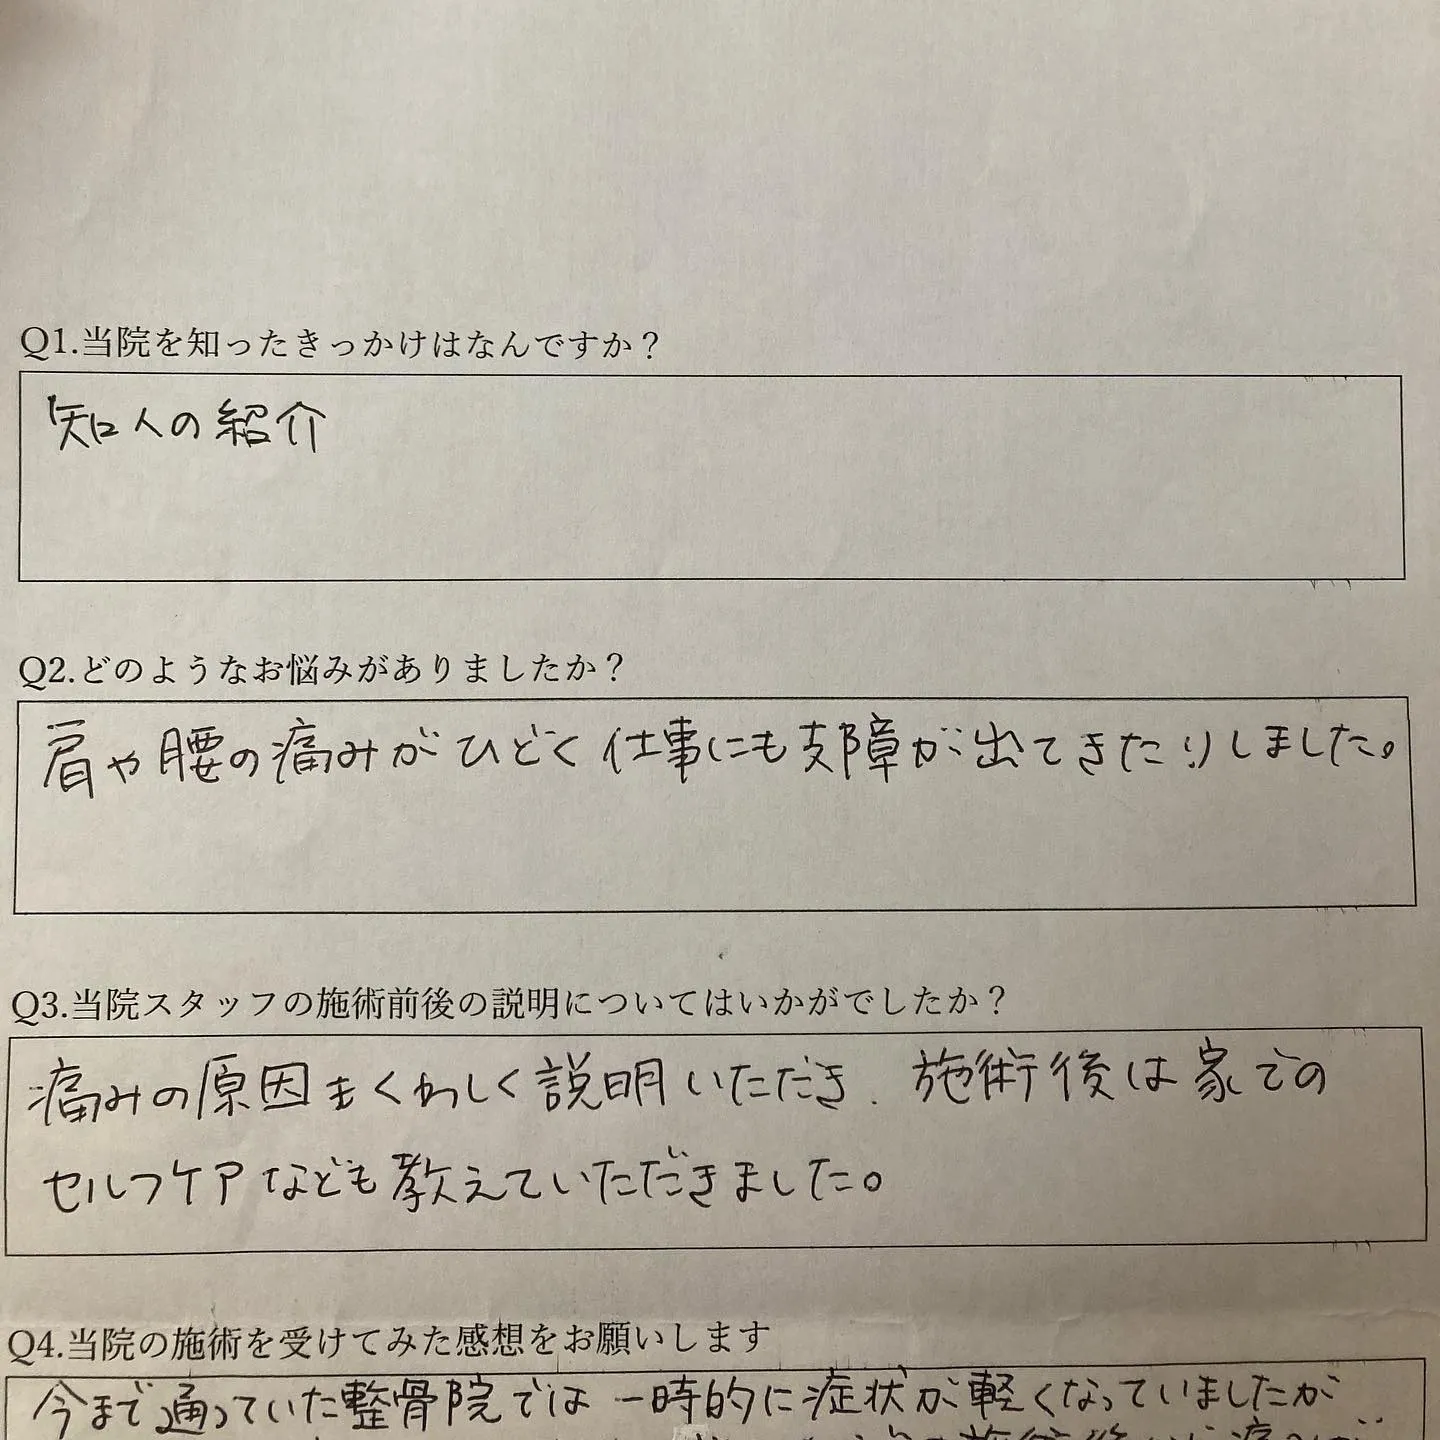 Q1.当院を知ったきっかけはなんですか？
知人の紹介
Q2.どのようなお悩みがありましたか？
肩や腰の痛みがひどく仕事にも支障が出てきたりしました。
Q3.当院スタッフの施術前後の説明についてはいかがでしたか？
痛みの原因をくわしく説明いただき、施術後は家での
セルフケアなども教えていただきました。
Q4.当院の施術を受けてみた感想をお願いします
今まで通っていた整骨院では一時的に症状が軽くなっていましたが